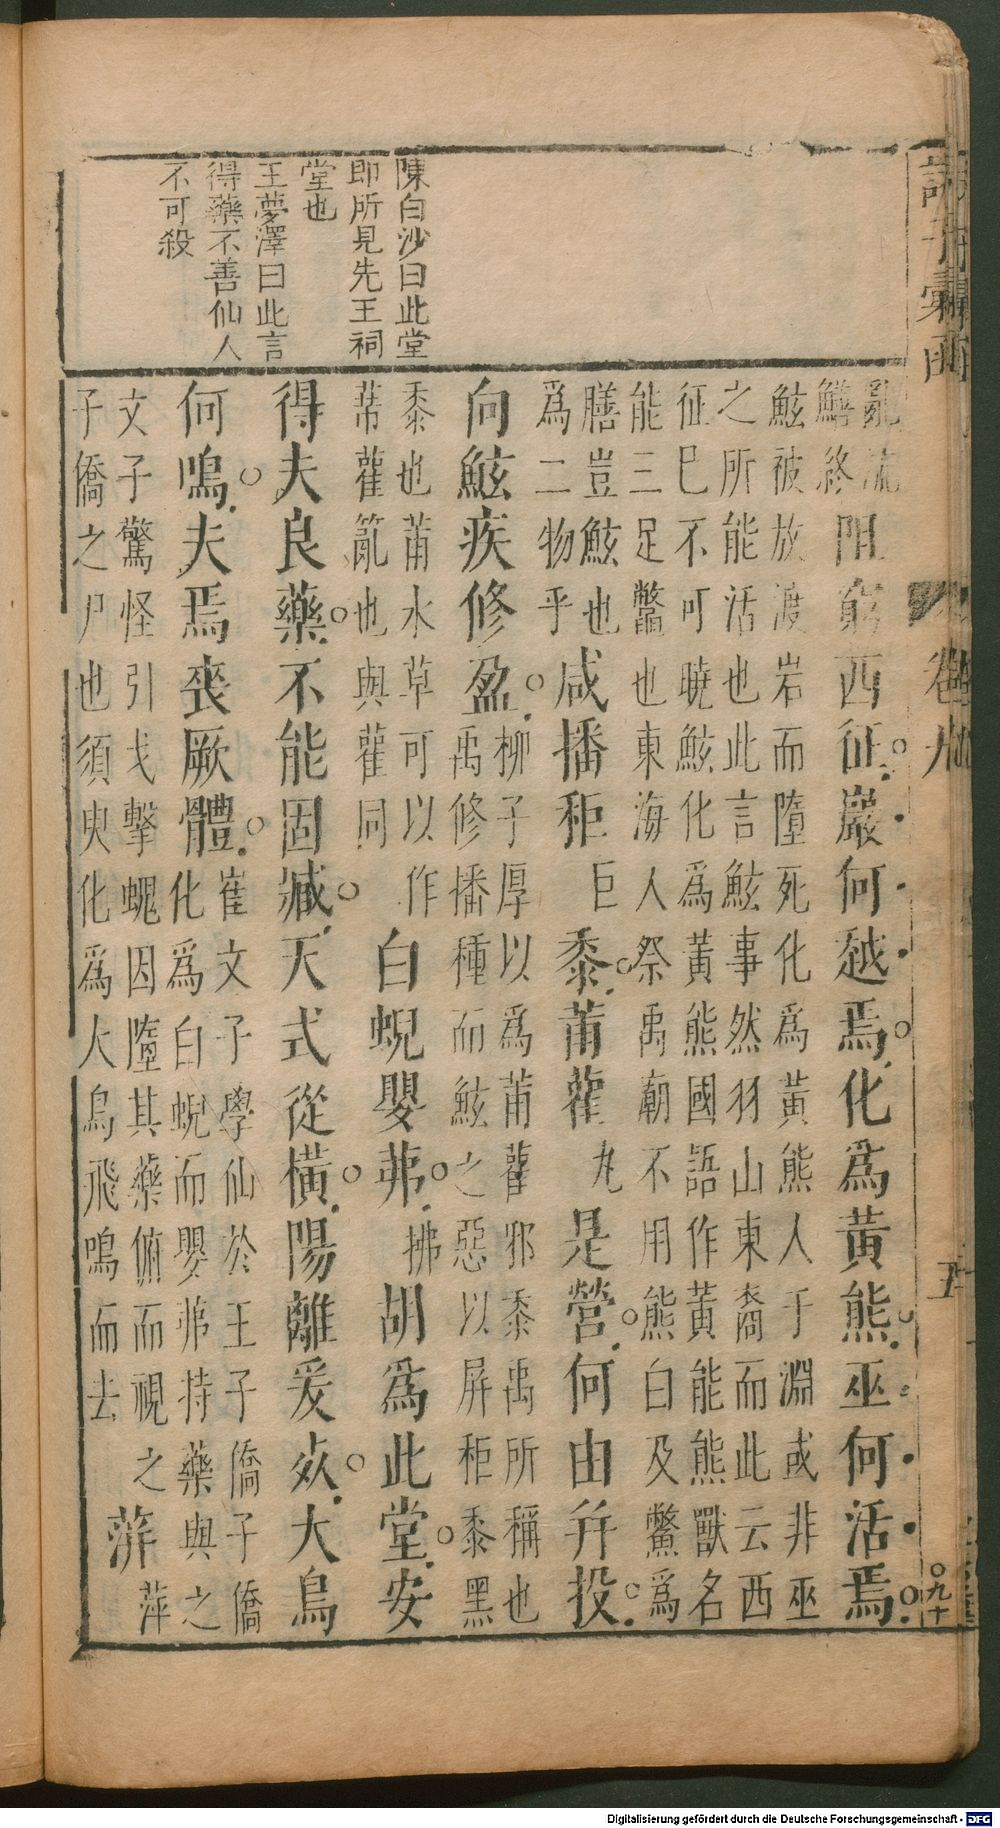 陳白沙曰此堂
即所見先王祠
堂也
王夢澤曰此言
得藥不善仙人
不可殺
亂流
鯀終
阻窮西征巖何越焉化為黃熊巫何活焉
鮌被放渡岩而墮死化為黃熊人于淵或非巫
之所能活也此言鮌事然羽山東裔而此云西
征巳不可曉鮌化為黃熊國語作黃能熊獸名
能三足鼈也東海人祭禹廟不用熊白及鱉為
膳豈鮌也
為二物乎
咸播秬
巨
黍莆雚
丸
是營何由幷投
向鮌疾修盈
柳子厚以為莆雚邪黍禹所稱也
禹修播種而鮌之惡以屏秬黍黑
黍也莆水草可以作
蒂雚䉤也與雚同
白蜺嬰茀
拂
胡為此堂安
得夫良藥不能固臧天式從橫陽離爰㱙大鳥
何鳴夫焉喪厥體
崔文子學仙於王子僑子僑
化為白蜺而嬰茀持藥與之
文子驚怪引戈擊蜺因墮其藥俯而視之
子僑之尸也須臾化為大鳥飛鳴而去
蓱
萍
卷九
五
〇九十
Digitalisierung gefördert durch die Deutsche Forschungsgemeinschaft - DFG